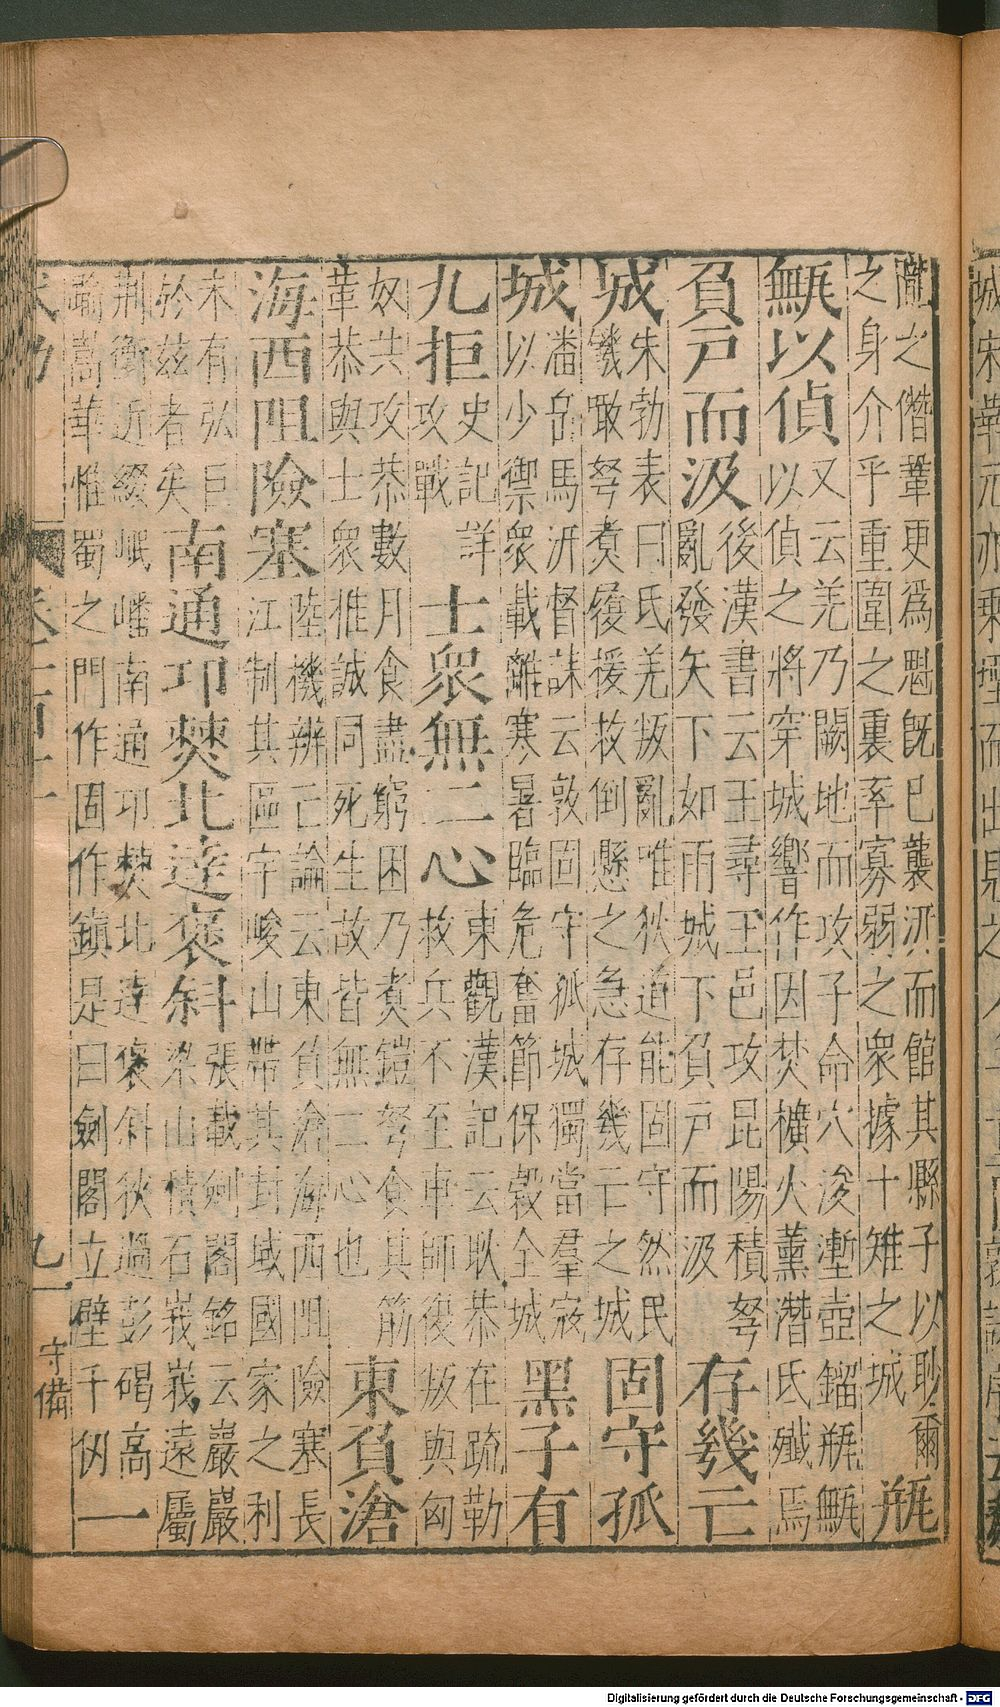 隴之僭鞏更爲魁旣已襲汧而館其縣子以眇爾
之身介乎重圍之裏率寡弱之衆據十雉之城
瓶
甒以偵
又云羌乃闕地而攻子命穴浚壍壺鎦瓶甒
以偵之將穿城響作因焚櫎火薰潛氐殲焉
負戸而汲
後漢書云王尋王邑攻昆陽積弩
亂發矢下如雨城下負戸而汲
存幾亡
城
朱勃表曰氐羌叛亂唯狄道能固守然民
饑敢弩煑履援救倒懸之急存幾亡之城
固守孤
城
潘岳馬汧督誄云敦固守孤城獨當羣寇
以少禦衆載離寒暑臨危奮節保穀全城
黑子有
九拒
史記詳
攻戰
士衆無二心
東觀漢記云耿恭在疏勒
救兵不至車師復叛與匈
奴共攻恭數月食盡窮困乃煑鎧弩食其筋
革恭與士衆推誠同死生故皆無二心也
東負滄
海西阻險塞
陸機辨亡論云東負滄海西阻險塞長
江制其區宇峻山帶其封域國家之利
未有弘巨
於茲者矣
南通卭僰北達褒斜
張載劍閣銘云巖巖
梁山積石峩峩遠屬
荆衡近綴岷嶓南通卭僰北達褒斜狄過彭碣高
踰嵩華惟蜀之門作固作鎮是曰劍閣立壁千仞
一
九
守備
Digitalisierung gefördert durch die Deutsche Forschungsgemeinschaft - DFG